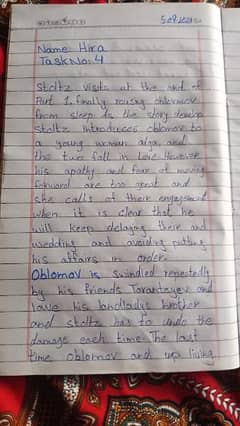 Name: Hira
Task No: 4
Stoltz visits at the end of
Part 1, finally rousing oblomov
from sleep As the story develop
stoltz introduces oblomov to
a young woman olga, and
the two fall in love. However
his apathy and fear of moving
forward are too great and
she calls of their engagement
when it is clear that he
will keep delaying their and
wedding and avoiding puting
his affairs in order.
Oblomov is swindled repeatedly
by his friends Taranteyev and
his landladys brother
and stoltz has to undo the
damage each time. The last
time oblomov end up living